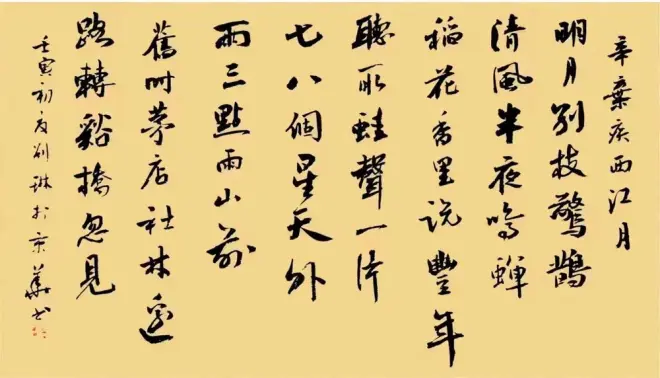 辛棄疾西江月
明月别枝驚鵲
清風半夜鳴蟬
稻花香里説豐年
聽取蛙聲一片
七八個星天外
兩三點雨山前
舊时茅店社林邊
路轉谿橋忽見
壬寅初夏刘琳於京華书